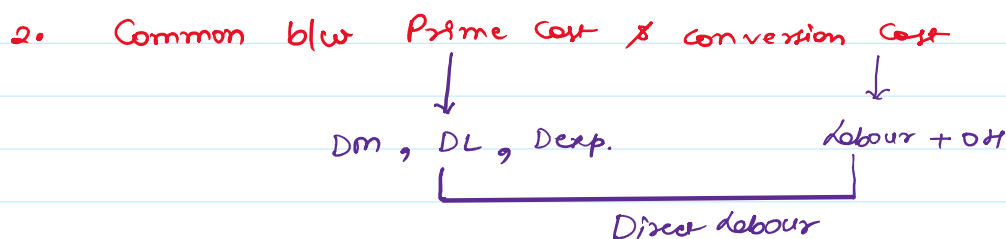 2. Common b/w Prime Cost & conversion Cost
DM, DL, Dexp. Labour + OH
Direct Labour